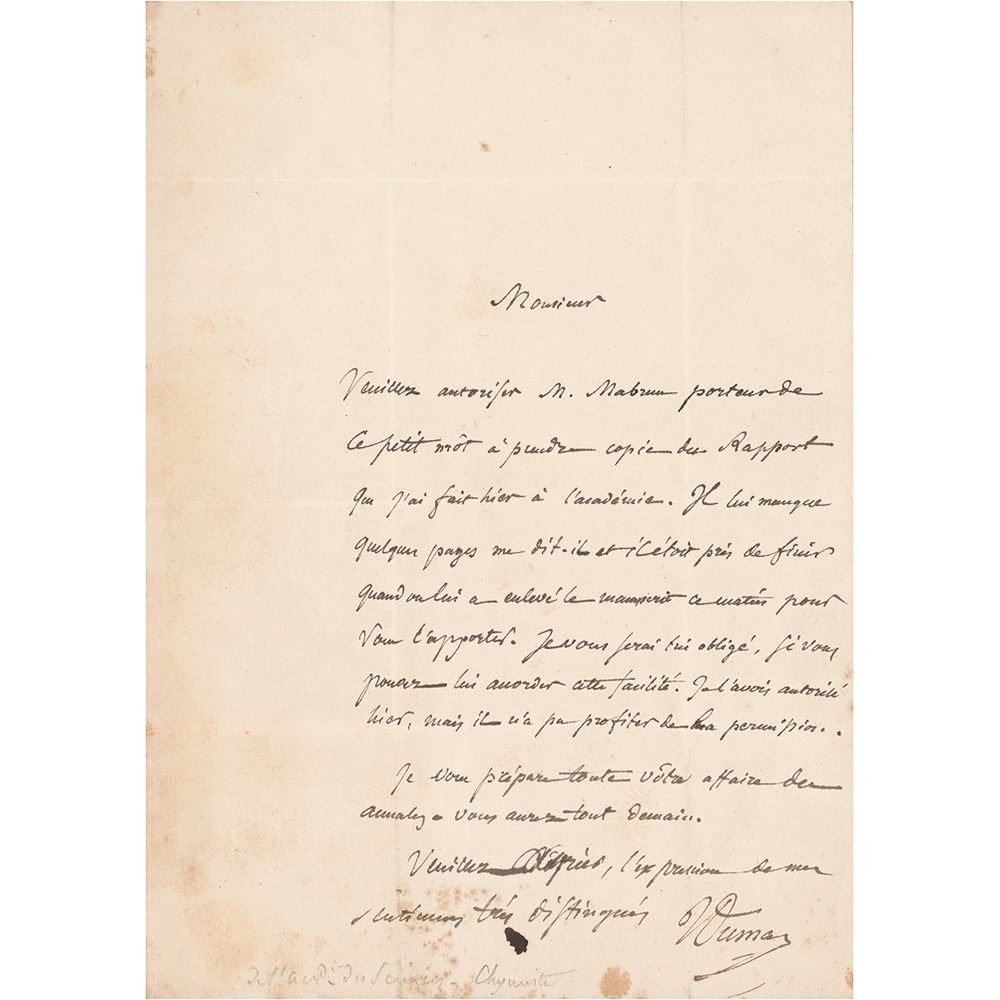 Monsieur
Veuillez autoriser M. Mabrun porteur de
ce petit môt à prendre copie du Rapport
que j'ai fait hier à l'académie. Il lui manque
quelques pages me dit-il et il étoit près de finir
quand on lui a enlevé le manuscrit ce matin pour
vous l'apporter. Je vous serai très obligé, si vous
pouvez lui accorder cette facilité. Je l'avois autorisé
hier, mais il n'a pu profiter de la permission.
Je vous prépare toute vôtre affaire des
annales - vous aurez tout demain.
Veuillez, l'expression de mes
sentimens très distingués
Dumas
de l'acad. des Sciences - Chymiste